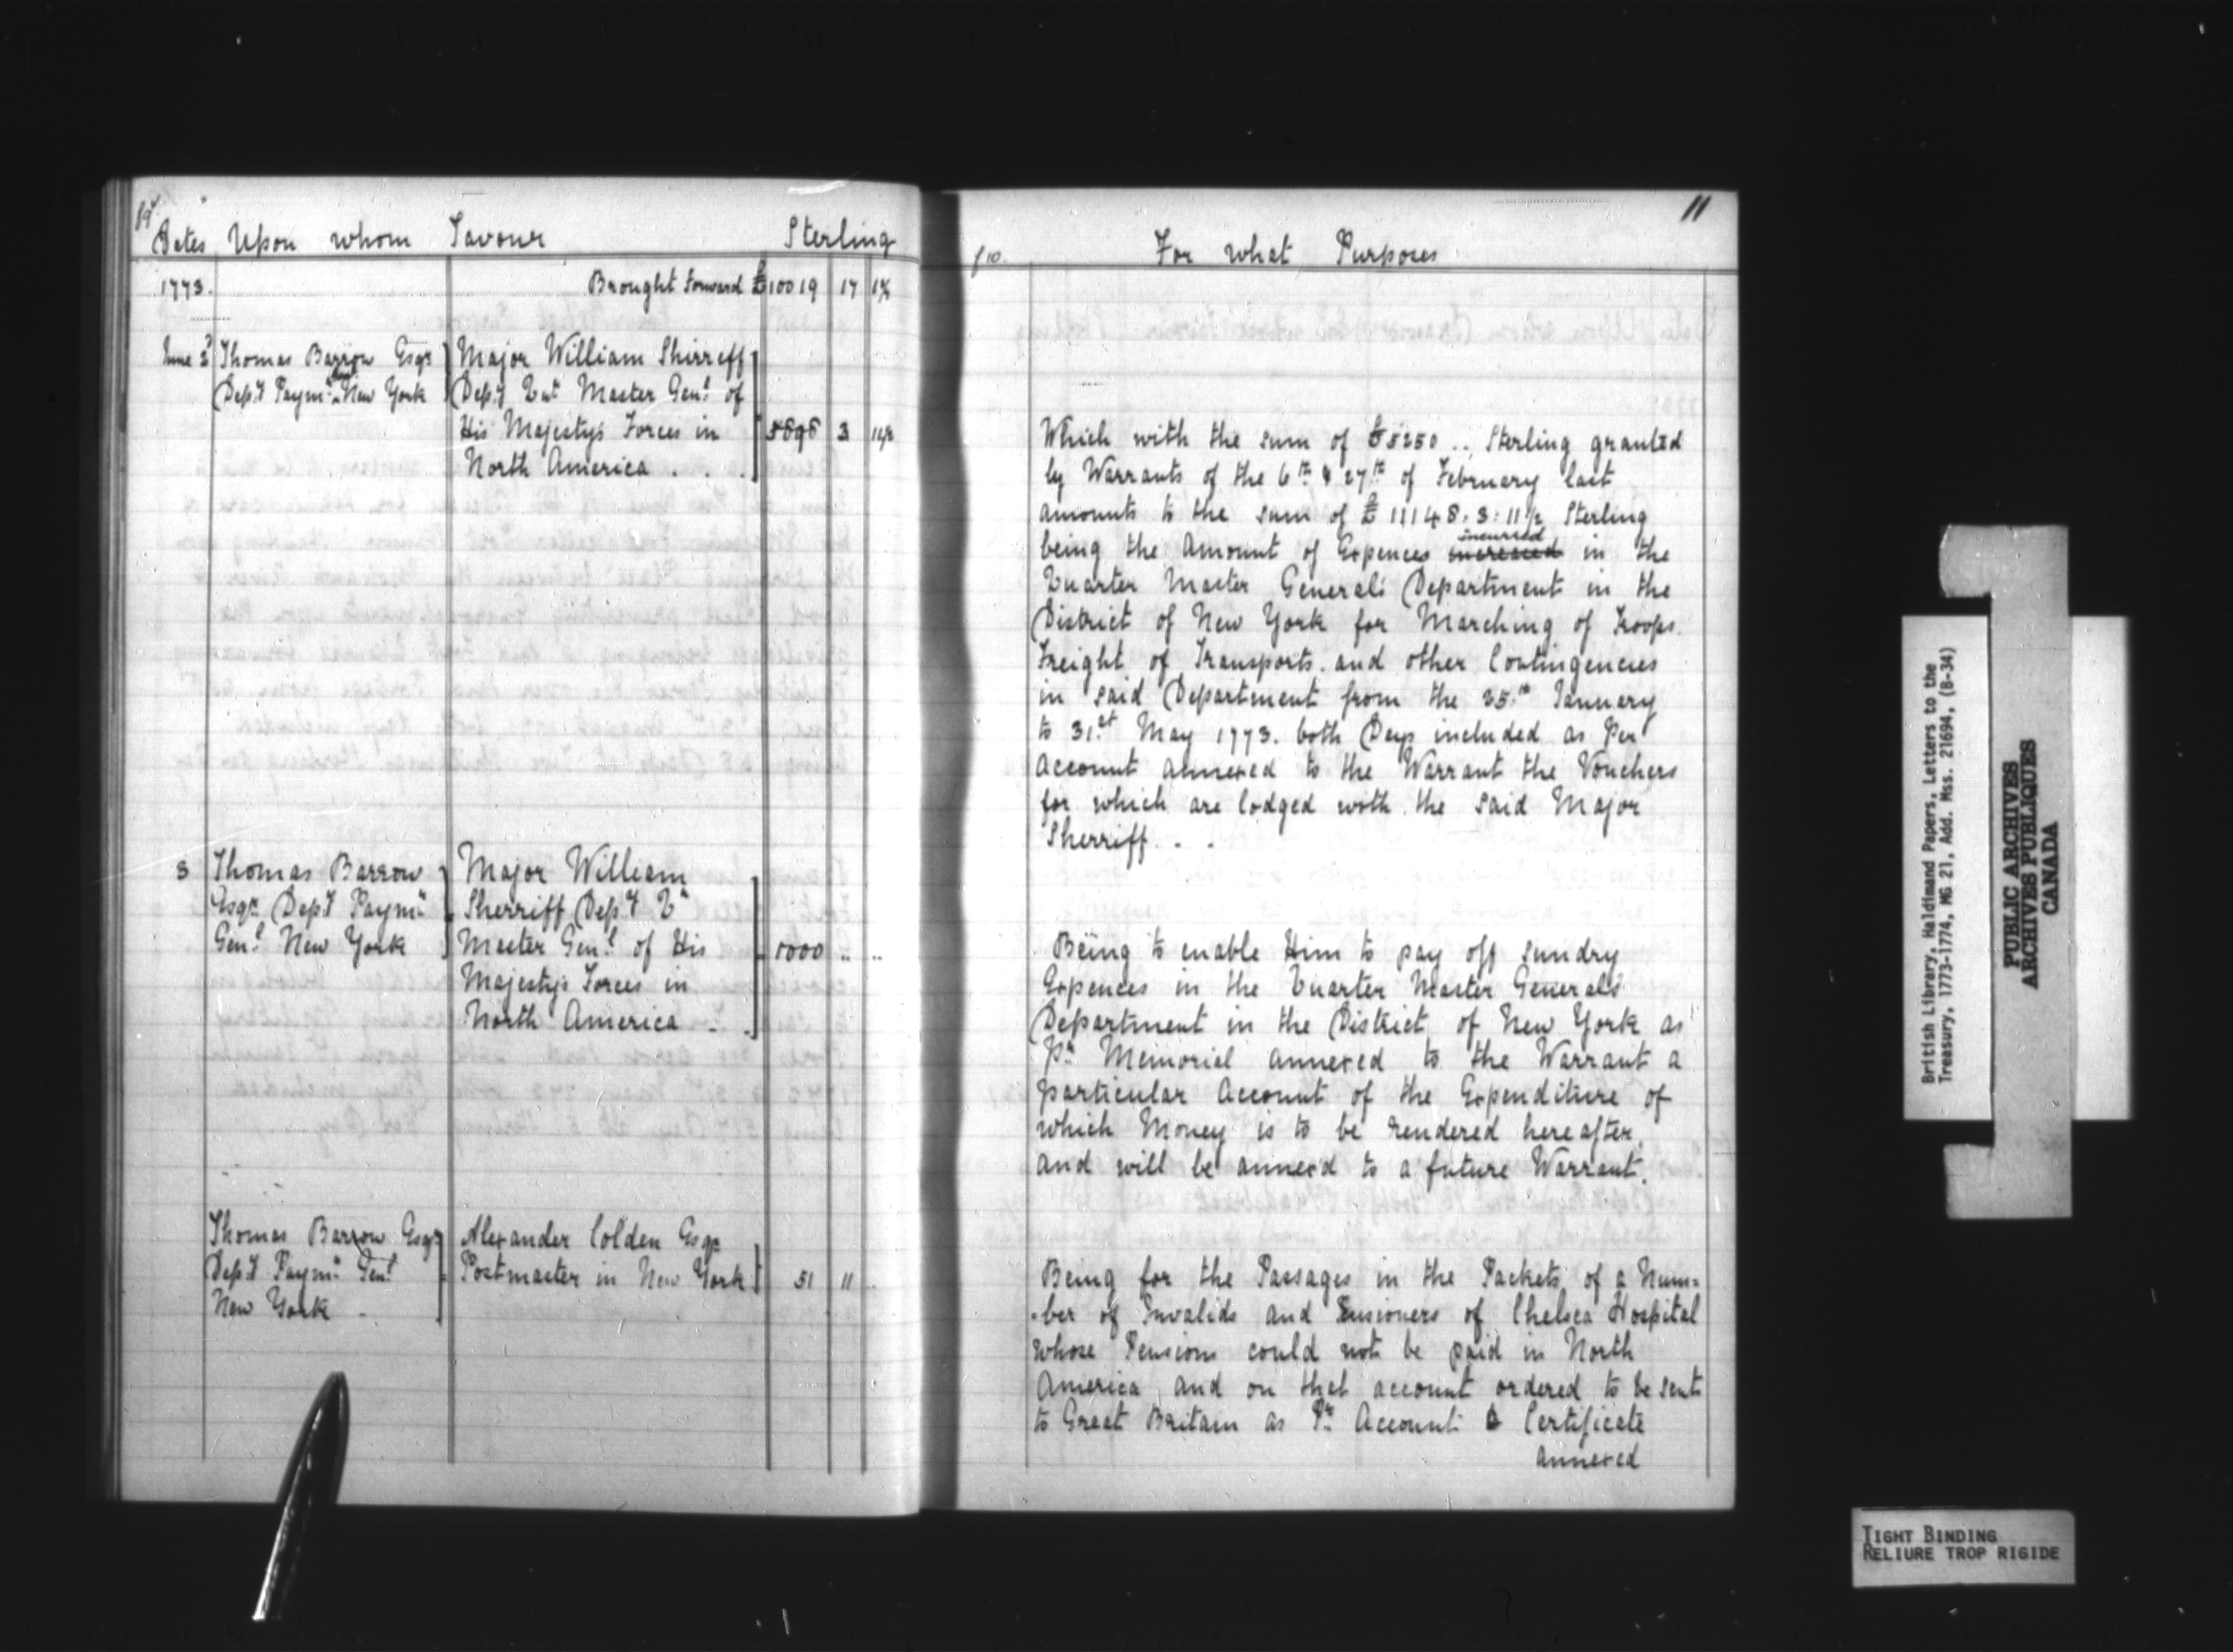 Dates Upon whom Favour Sterling
1773. Brought Forward £10019 17
June 3d Thomas Barrow Esqr Major William Shirreff
Depy Paymr Genl New York Depy Qut Master Genl of
His Majestys Forces in 5898 3 11½
North America . . .
3 Thomas Barrow Major William
Esqr Depy Paymr Sherriff Depy Qr
Genl New York Master Genl of His 1000 .. ..
Majestys Forces in
North America .
Thomas Barrow Esqr Alexander Colden Esqr
Depy Paymr Genl Postmaster in New York 51 11 ..
New York .
11
f10. For what Purposes
Which with the sum of £5250 .. Sterling granted
by Warrants of the 6th & 27th of February last
amounts to the sum of £11148. 3: 11½ Sterling
being the Amount of Expences increased incurred in the
Quarter Master Generals Department in the
District of New York for Marching of Troops.
Freight of Transports. and other Contingencies
in said Department from the 25th January
to 31st May 1773. both Days included as Per
Account annexed to the Warrant the Vouchers
for which are lodged with the said Major
Sherriff. . .
Being to enable Him to pay off sundry
Expences in the Quarter Master General's
Department in the District of New York as
Pr Memorial annexed to the Warrant a
particular Account of the Expenditure of
which Money is to be rendered hereafter.
and will be annexd to a future Warrant.
Being for the Passages in the Packets of a Num=
-ber of Invalids and Pensioners of Chelsea Hospital
whose Pensions could not be paid in North
America and on that account ordered to be sent
to Great Britain as Pr Account & Certificate
annexed
British Library, Haldimand Papers, Letters to the
Treasury, 1773-1774, MG 21, Add. Mss. 21694, (B-34)
PUBLIC ARCHIVES
ARCHIVES PUBLIQUES
CANADA
TIGHT BINDING
RELIURE TROP RIGIDE